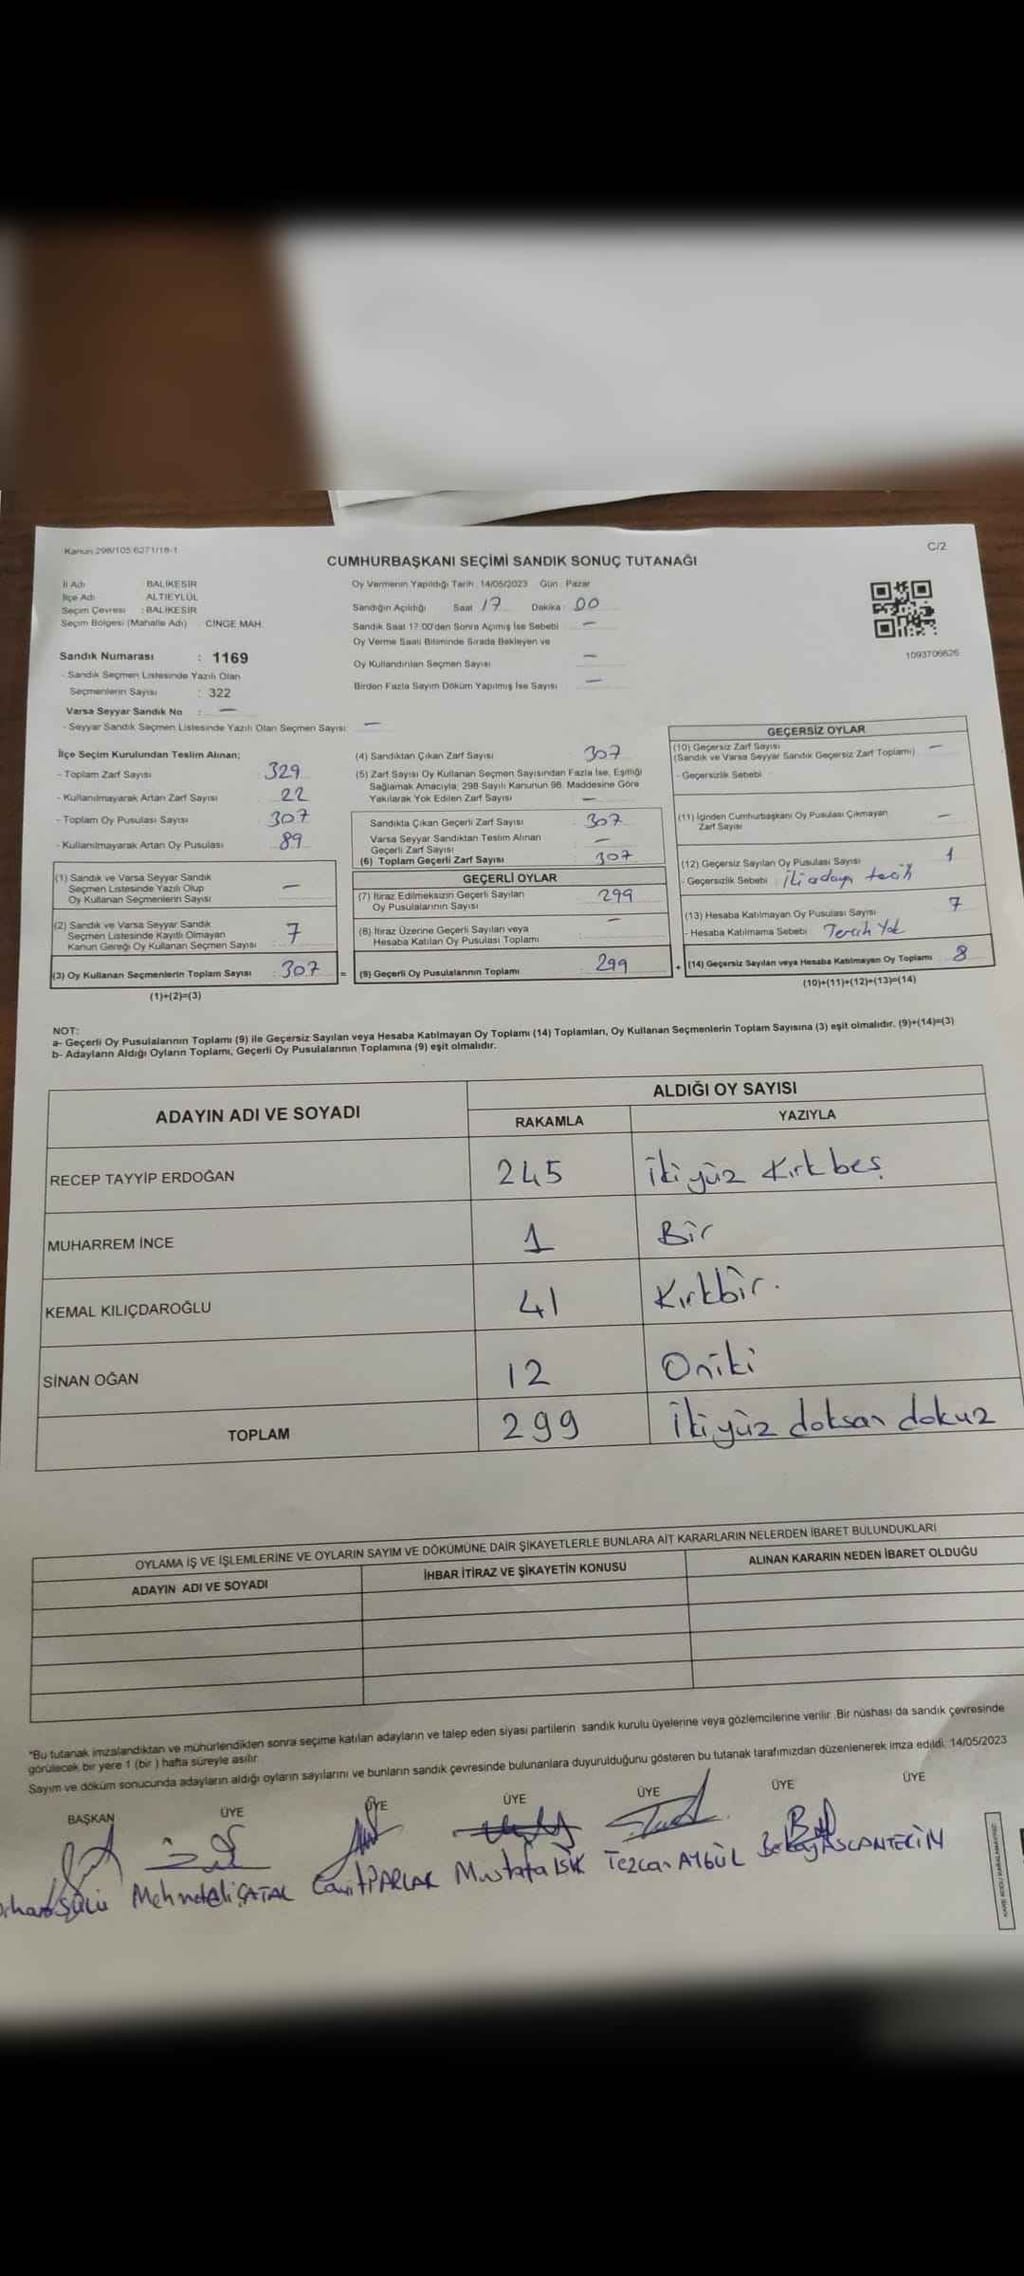 Kanun 298/105 6271/18-1
C/2
CUMHURBAŞKANI SEÇİMİ SANDIK SONUÇ TUTANAĞI
İl Adı BALIKESİR
İlçe Adı ALTIEYLÜL
Seçim Çevresi : BALIKESİR
Seçim Bölgesi (Mahalle Adı) CİNGE MAH.
Sandık Numarası : 1169
- Sandık Seçmen Listesinde Yazılı Olan
Seçmenlerin Sayısı : 322
Varsa Seyyar Sandık No : —
- Seyyar Sandık Seçmen Listesinde Yazılı Olan Seçmen Sayısı: —
Oy Vermenin Yapıldığı Tarih: 14/05/2023 Gün: Pazar
Sandığın Açıldığı Saat 17 Dakika 00
Sandık Saat 17:00'den Sonra Açımış İse Sebebi —
Oy Verme Saati Bitiminde Sırada Bekleyen ve
Oy Kullandırılan Seçmen Sayısı —
Birden Fazla Sayım Döküm Yapılmış İse Sayısı —
1093706626
İlçe Seçim Kurulundan Teslim Alınan;
- Toplam Zarf Sayısı 329
- Kullanılmayarak Artan Zarf Sayısı 22
- Toplam Oy Pusulası Sayısı 307
- Kullanılmayarak Artan Oy Pusulası 89
(1) Sandık ve Varsa Seyyar Sandık
Seçmen Listesinde Yazılı Olup
Oy Kullanan Seçmenlerin Sayısı —
(2) Sandık ve Varsa Seyyar Sandık
Seçmen Listesinde Kayıtlı Olmayan
Kanun Gereği Oy Kullanan Seçmen Sayısı 7
(3) Oy Kullanan Seçmenlerin Toplam Sayısı 307 =
(1)+(2)=(3)
(4) Sandıktan Çıkan Zarf Sayısı 307
(5) Zarf Sayısı Oy Kullanan Seçmen Sayısından Fazla İse, Eşitliği
Sağlamak Amacıyla; 298 Sayılı Kanunun 98. Maddesine Göre
Yakılarak Yok Edilen Zarf Sayısı —
Sandıkta Çıkan Geçerli Zarf Sayısı 307
Varsa Seyyar Sandıktan Teslim Alınan
Geçerli Zarf Sayısı —
(6) Toplam Geçerli Zarf Sayısı 307
GEÇERLİ OYLAR
(7) İtiraz Edilmeksizin Geçerli Sayılan
Oy Pusulalarının Sayısı 299
(8) İtiraz Üzerine Geçerli Sayılan veya
Hesaba Katılan Oy Pusulası Toplamı —
(9) Geçerli Oy Pusulalarının Toplamı 299 +
GEÇERSİZ OYLAR
(10) Geçersiz Zarf Sayısı
(Sandık ve Varsa Seyyar Sandık Geçersiz Zarf Toplamı) —
- Geçersizlik Sebebi
(11) İçinden Cumhurbaşkanı Oy Pusulası Çıkmayan
Zarf Sayısı —
(12) Geçersiz Sayılan Oy Pusulası Sayısı 1
- Geçersizlik Sebebi
(13) Hesaba Katılmayan Oy Pusulası Sayısı 7
- Hesaba Katılmama Sebebi Tercih Yok
(14) Geçersiz Sayılan veya Hesaba Katılmayan Oy Toplamı 8
(10)+(11)+(12)+(13)=(14)
NOT:
a- Geçerli Oy Pusulalarının Toplamı (9) ile Geçersiz Sayılan veya Hesaba Katılmayan Oy Toplamı (14) Toplamları, Oy Kullanan Seçmenlerin Toplam Sayısına (3) eşit olmalıdır. (9)+(14)=(3)
b- Adayların Aldığı Oyların Toplamı, Geçerli Oy Pusulalarının Toplamına (9) eşit olmalıdır.
ADAYIN ADI VE SOYADI
ALDIĞI OY SAYISI
RAKAMLA YAZIYLA
RECEP TAYYİP ERDOĞAN 245 İki yüz Kırk beş
MUHARREM İNCE 1 Bir
KEMAL KILIÇDAROĞLU 41 Kırkbir.
SİNAN OĞAN 12 Oniki
TOPLAM 299 İki yüz doksan dokuz
OYLAMA İŞ VE İŞLEMLERİNE VE OYLARIN SAYIM VE DÖKÜMÜNE DAİR ŞİKAYETLERLE BUNLARA AİT KARARLARIN NELERDEN İBARET BULUNDUKLARI
ADAYIN ADI VE SOYADI İHBAR İTİRAZ VE ŞİKAYETİN KONUSU ALINAN KARARIN NEDEN İBARET OLDUĞU
*Bu tutanak imzalandıktan ve mühürlendikten sonra seçime katılan adayların ve talep eden siyasi partilerin sandık kurulu üyelerine veya gözlemcilerine verilir. Bir nüshası da sandık çevresinde
görülecek bir yere 1 (bir) hafta süreyle asılır.
Sayım ve döküm sonucunda adayların aldığı oyların sayılarını ve bunların sandık çevresinde bulunanlara duyurulduğunu gösteren bu tutanak tarafımızdan düzenlenerek imza edildi. 14/05/2023
BAŞKAN ÜYE ÜYE ÜYE ÜYE ÜYE ÜYE
Mehmet Ali ÇATAL Cavit PARLAK Mustafa IŞIK Tezcan AYGÜL